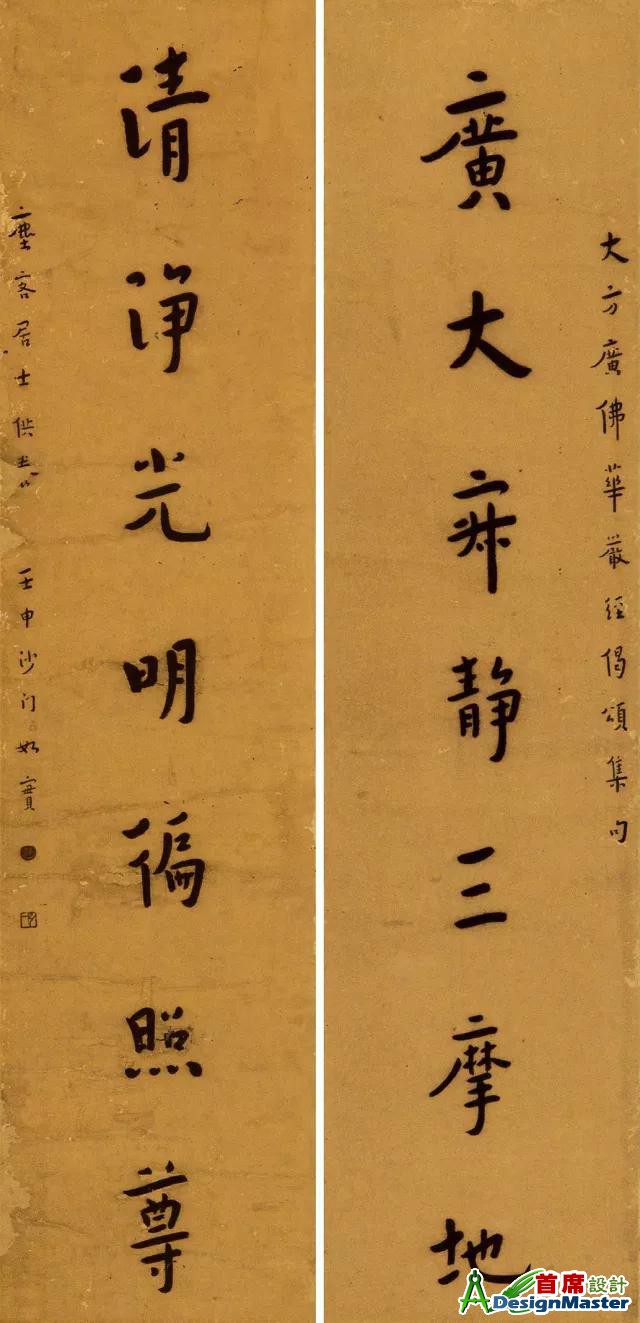 大方廣佛華嚴經偈頌集句
廣大寂靜三摩地
清淨光明徧照尊
塵客居士供養 壬申沙门如實
首席設計
DesignMaster